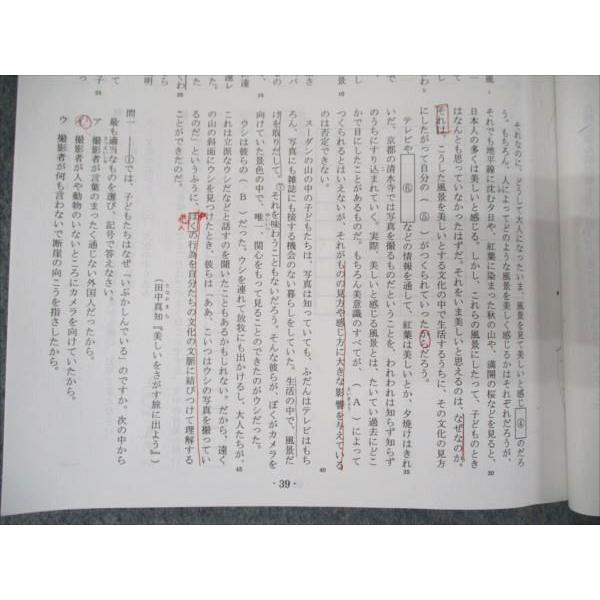 それなのに、どうして大人になったいま、風景を見て美しいと感じ ④ のだろ
う。もちろん、人によってどのような風景を美しく感じるかはそれぞれだろうが、
それでも地平線に沈む夕日や、紅葉に染まった秋の山や、満開の桜などを見ると、
日本人の多くは美しいと感じる。しかし、これらの風景にしたって、子どものとき
はなんとも思っていなかったはずだ。それをいま美しいと思えるのは、なぜなのか。
それは、こうした風景を美しいとする文化の中で生活するうちに、その文化の見方
にしたがって自分の（ ⑤ ）がつくられていったからだろう。
テレビや ⑥ などの情報を通して、紅葉は美しいとか、夕焼けはきれ
いだ、京都の清水寺では写真を撮るものだということを、われわれは知らず知らず
のうちにすり込まれていく。実際、美しいと感じる風景とは、たいてい過去にどこ
かで目にしたことがあるものだ。もちろん美意識のすべてが、（ A ）によって
つくられるとはいえないが、それがものの見方や感じ方に大きな影響を与えている
のは否定できない。
スーダンの山の中の子どもたちは、写真は知っていても、ふだんはテレビはもち
ろん、写真にも雑誌にも接する機会のない暮らしをしていた。生活の中で、風景だ
けを取りだして、それを味わうこともないだろう。そんな彼らが、ぼくがカメラを
向けていた景色の中で、唯一、関心をもって見ることのできたのがウシだった。
ウシは彼らの（ B ）だった。ウシを連れて放牧にも出かけるし、大人たちが、
これは立派なウシだなどと話すのを聞いたこともあるかもしれない。だから、遠く
の山の斜面にウシを見つけたとき、彼らは「ああ、こいつはウシの写真を撮ってい
るのだ」というふうに、ぼくの行為を自分たちの文化の文脈に結びつけて理解する
ことができたのだ。
（田中真知『美しいをさがす旅に出よう』）
問一 ――①では、子どもたちはなぜ「いぶかしんでいる」のですか。次の中から
最も適当なものを選び、記号で答えなさい。
ア 撮影者が言葉のまったく通じない外国人だったから。
イ 撮影者が人や動物のいないところにカメラを向けていたから。
ウ 撮影者が何も言わないで断崖の向こうを指さしたから。
30
35
40
45
・39・